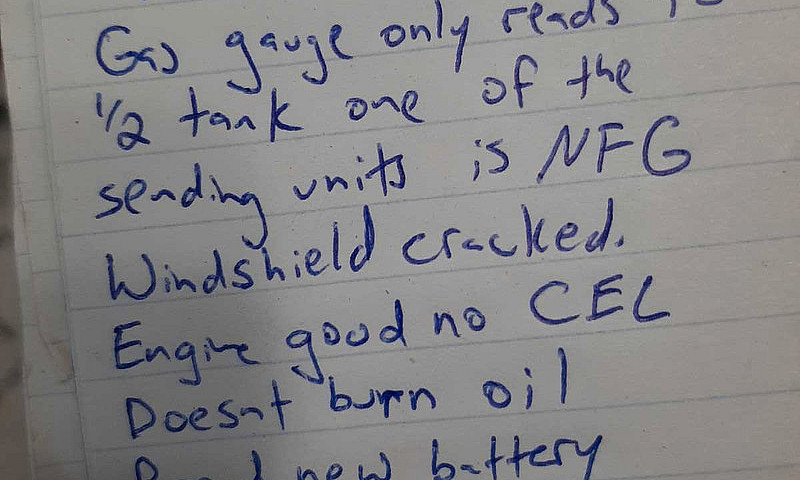 Gas gauge only reads to
1/2 tank one of the
sending units is NFG
Windshield cracked.
Engine good no CEL
Doesnt burn oil
Brand new battery